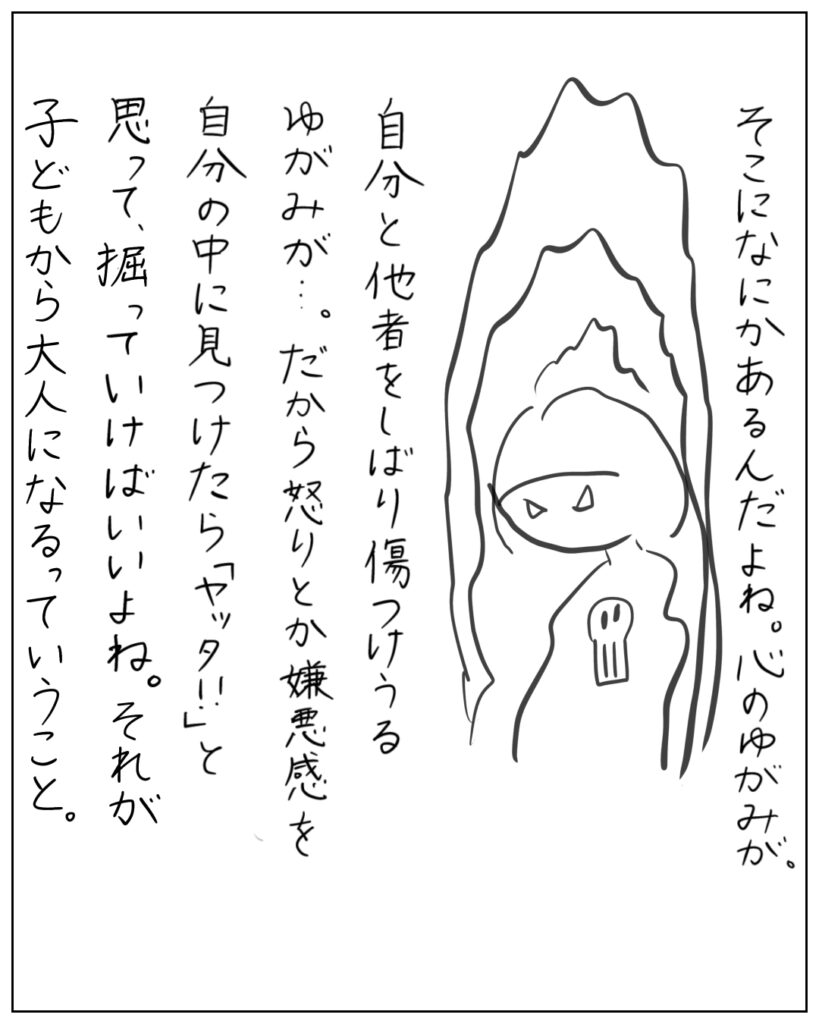 そこになにかあるんだよね。心のゆがみが。
自分と他者をしばり傷つけうる
ゆがみが…。だから怒りとか嫌悪感を
自分の中に見つけたら「ヤッタ!!」と
思って、掘っていけばいいよね。それが
子どもから大人になるっていうこと。